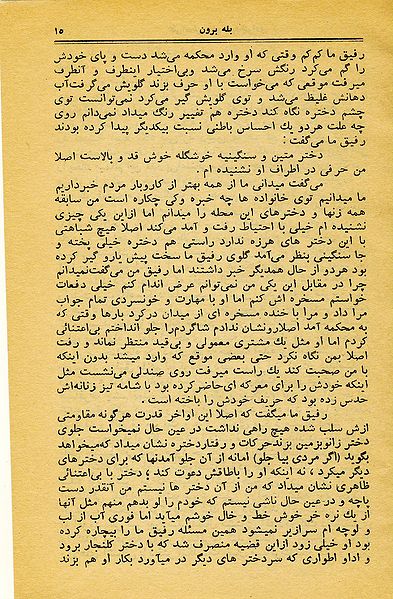 بله برون ۱۵
رفیق ما کم کم وقتی که او وارد محکمه می‌شد دست و پای خودش
را گم می‌کرد رنگش سرخ می‌شد وبی‌اختیار اینطرف و آنطرف
میرفت موقعی که می‌خواست با او حرف بزند گلویش می‌گرفت‌آب
دهانش غلیظ می‌شد و توی گلویش گیر می‌کرد نمی‌توانست توی
چشم دختره نگاه کند دختره هم تغییر رنگ میداد نمی‌دانم روی
چه علت هردو یك احساس باطنی نسبت بیکدیگر پیدا کرده بودند
رفیق ما می‌گفت :
دختر متین و سنگینیه خوشگله خوش قد و بالاست اصلا
من حرفی در اطراف او نشنیده ام .
می‌گفت میدانی ما از همه بهتر از کاروبار مردم خبرداریم
ما میدانیم توی خانواده ها چه خبره وکی چکاره است من سابقه
همه زنها و دخترهای این محله را میدانم اما ازاین یکی چیزی
نشنیده ام خیلی با احتیاط رفت و آمد می‌کند اصلا هیچ شباهتی
با این دختر های هرزه ندارد راستی هم دختره خیلی پخته و
جا سنگینی بنظر می‌آمد گلوی رفیق ما سخت پیش یارو گیر کرده
بود هردو از حال همدیگر خبر داشتند اما رفیق من می‌گفت‌نمیدانم
چرا در مقابل این یکی من نمی‌توانم عرض اندام کنم خیلی دفعات
خواستم مسخره اش کنم اما او با مهارت و خونسردی تمام جواب
مرا داد و مرا با خنده مسخره ای از میدان درکرد بارها وقتی که
به محکمه آمد اصلارونشان ندادم شاگردم‌را جلو انداختم بی‌اعتنائی
کردم اما او مثل یك مشتری معمولی و بی‌قید منتظر نماند و رفت
اصلا بمن نگاه نکرد حتی بعضی موقع که وارد میشد بدون اینکه
با من صحبت کند یك راست میرفت روی صندلی می‌نشست مثل
اینکه خودش را برای معرکه ای‌حاضرکرده بود با شامه تیز زنانه‌اش
حدس زده بود که حریف خودش را باخته است .
رفیق ما میگفت که اصلا این اواخر قدرت هرگونه مقاومتی
ازش سلب شده هیچ راهی نداشت در عین حال نمیخواست جلوی
دختر زانوبزمین بزندحرکات و رفتاردختره نشان میداد که‌میخواهد
بگوید (اگر مردی بیا جلو) امانه از آن جلو آمدنها که برای دخترهای
دیگر میکرد ، نه اینکه او را باطاقش دعوت کند ؛ دختر با بی‌اعتنائی
ظاهری نشان میداد که من از آن دختر ها نیستم من آنقدر دست
پاچه و درعین حال ناشی نیستم که خودم را لو بدهم منهم مثل آنها
از یك نره خر خوش خط و خال خوشم میآید اما فوری آب از لب
و لوچه ام سرازیر نمیشود همین مسئله رفیق ما را بیچاره کرده
بود او خیلی زود ازاین قضیه منصرف شد که با دختر کلنجار برود
و اداو اطواری که سردختر های دیگر در میآورد بکار او هم بزند